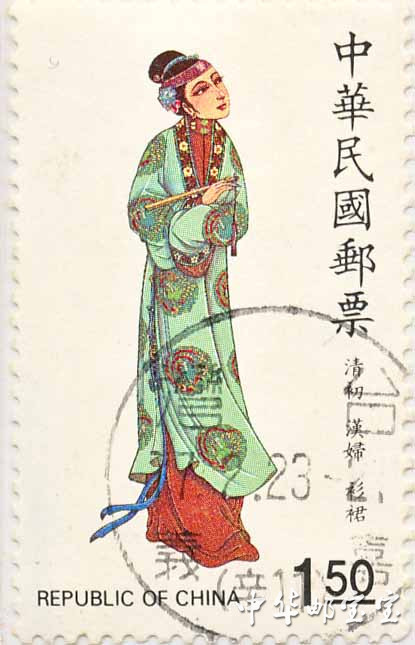 中華民國郵票
清初 漢婦 衫裙
REPUBLIC OF CHINA
1.50
23
義
(辛11)
中华邮宝室